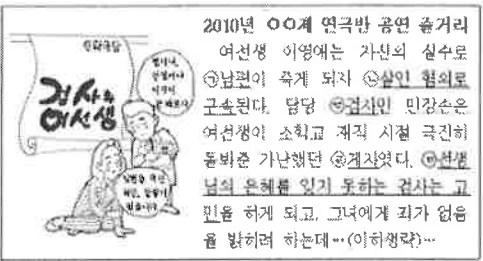 검사와
여선생
2010년 ○○계 연극반 공연 줄거리
여선생 이영애는 자신의 실수로
㉠남편이 죽게 되자 ㉡살인 혐의로
구속된다. 담당 ㉢검사인 민장손은
여선생이 소학교 재직 시절 극진히
돌봐준 가난했던 ㉣제자였다. ㉤선생
님의 은혜를 잊지 못하는 검사는 고
민을 하게 되고, 그녀에게 죄가 없음
을 밝히려 하는데…(이하생략)…